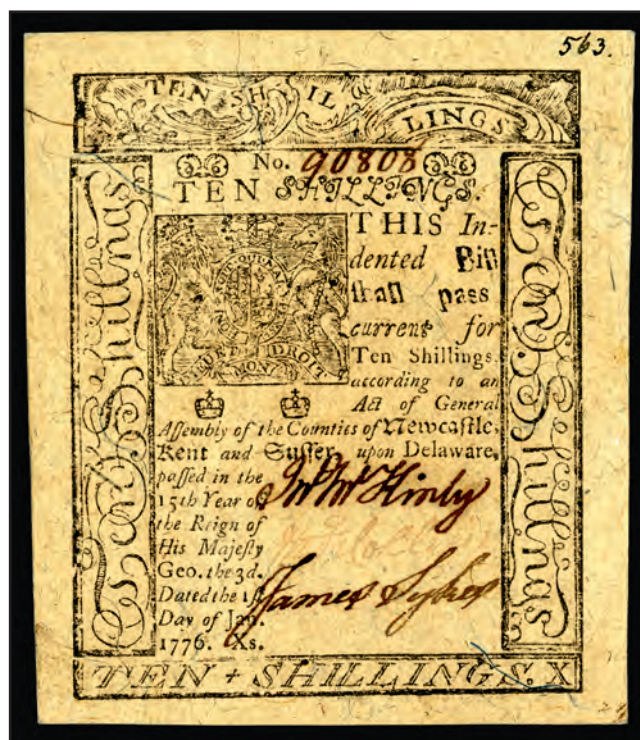 563.
TEN SHILLINGS
No. 90808
TEN SHILLINGS.
THIS In-
dented Bill
shall pass
current for
Ten Shillings,
according to an
Act of General
Assembly of the Counties of Newcastle,
Kent and Sussex, upon Delaware,
passed in the
15th Year of
the Reign of
His Majesty
Geo. the 3d.
Dated the 1st
Day of Jan.
1776. Xs.
Jno McKinly
James Sykes
Ten Shillings
Ten Shillings
DROIT
MON
TEN + SHILLINGS. X